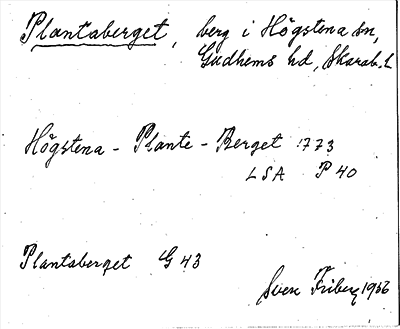 Plantaberget, berg i Högstena sn,
Gudhems hd, Skarab. l.
Högstena - Plante - Berget 1773
LSA P 40
Plantaberget G 43
Sven Friberg 1956